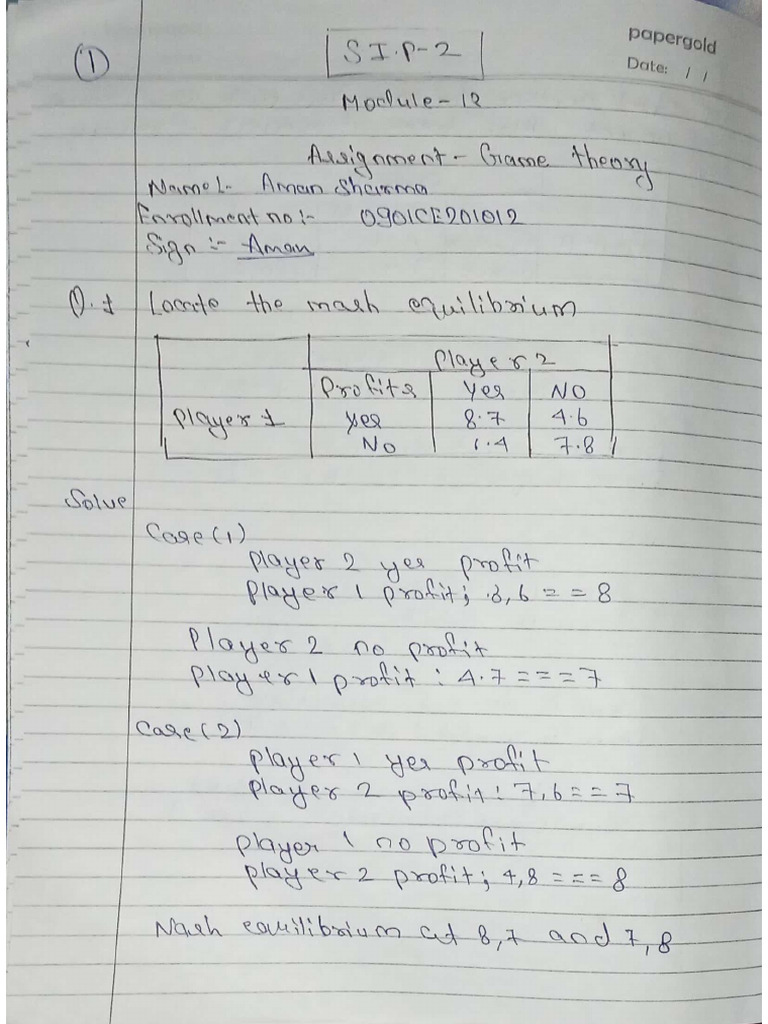 papergold
Date: / /
①
S I.P-2
Module-12
Assignment - Game theory
Name:- Aman Sharma
Enrollment no:- 0901CE201012
Sign:- Aman
Q.1 Locate the mash equilibrium
Player 2
Profits Yes NO
Player 1 yes 8.7 4.6
No 1.4 7.8
Solve
Case (1)
player 2 yes profit
player 1 profit; 8,6 = = 8
Player 2 no profit
player 1 profit : 4.7 = = = 7
Case (2)
player 1 yes profit
player 2 profit: 7,6 = = 7
player 1 no profit
player 2 profit; 4,8 = = = 8
Nash equilibrium at 8,7 and 7,8